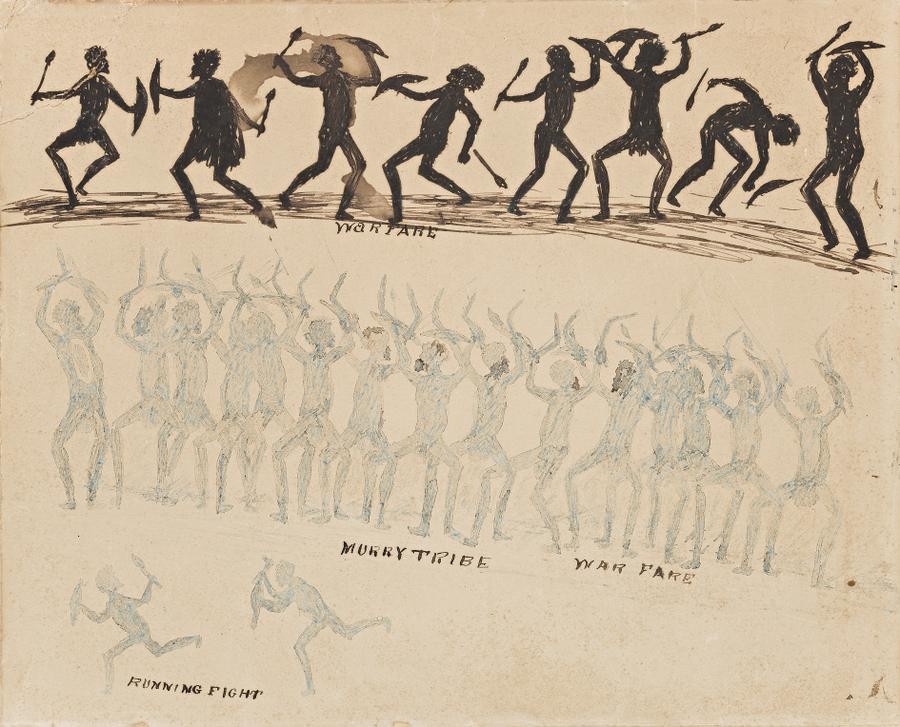 WARFARE
MURRY TRIBE WAR FARE
RUNNING FIGHT